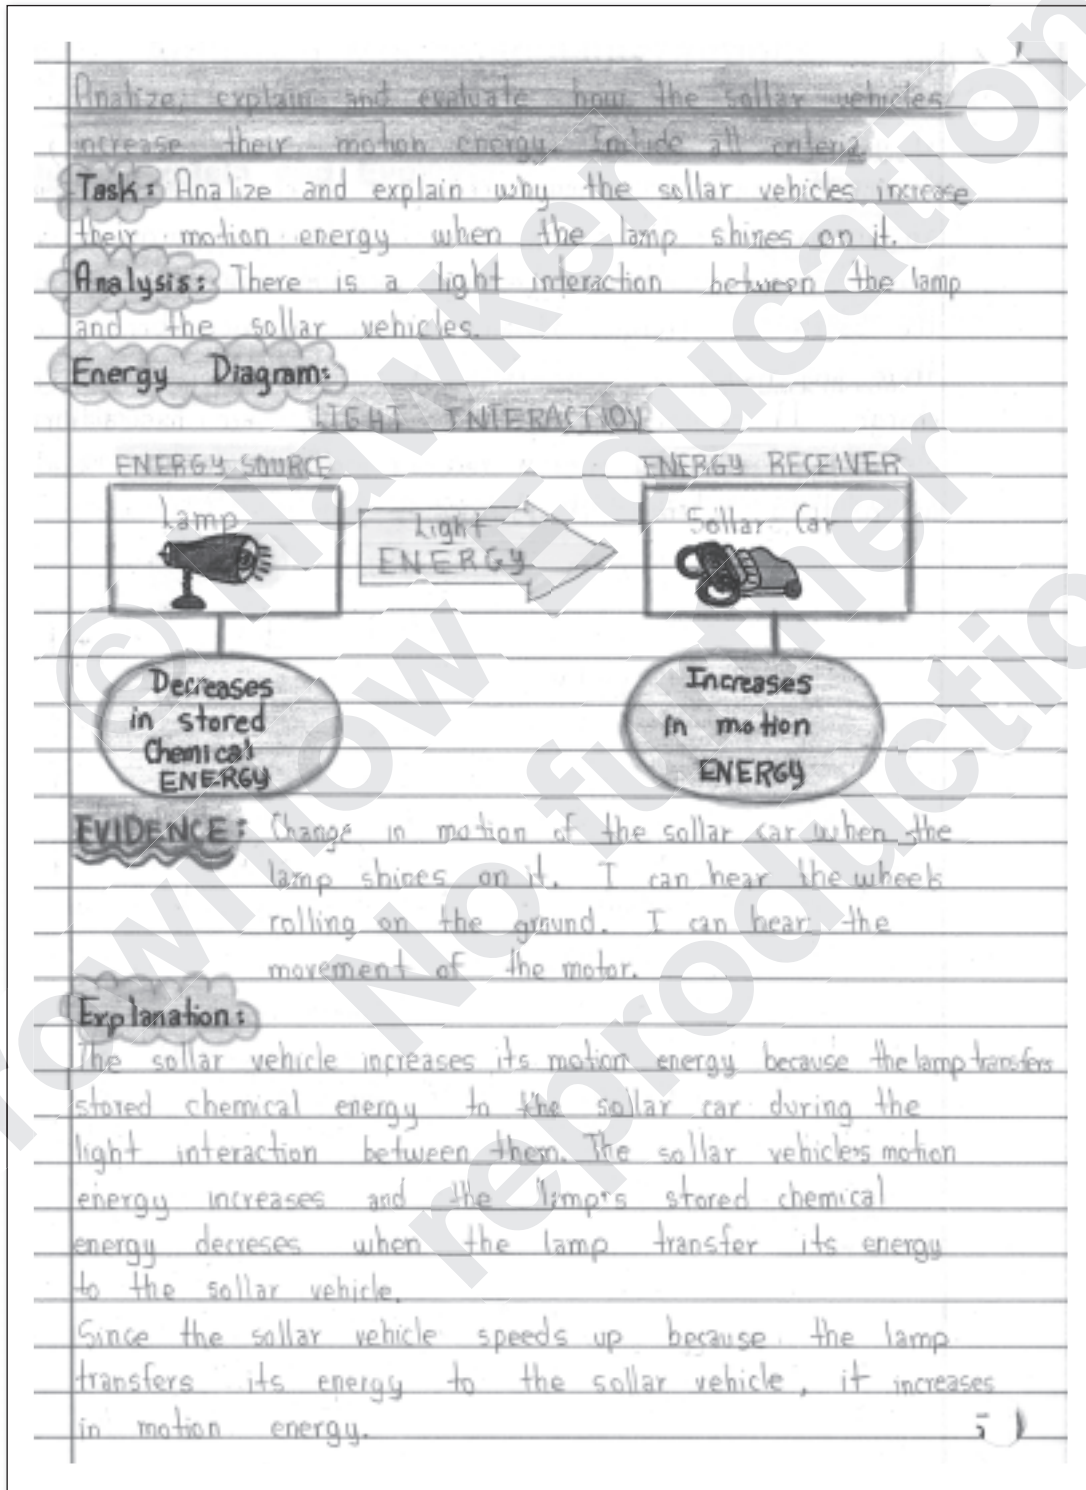 Analize, explain and evaluate how the sollar vehicles
increase their motion energy. Include all criteria.
Task: Analize and explain why the sollar vehicles increase
their motion energy when the lamp shines on it.
Analysis: There is a light interaction between the lamp
and the sollar vehicles.
Energy Diagram:
LIGHT INTERACTION
ENERGY SOURCE
ENERGY RECEIVER
Lamp
Light
ENERGY
Sollar Car
Decreases
in stored
Chemical
ENERGY
Increases
in motion
ENERGY
EVIDENCE: Change in motion of the sollar car when the
lamp shines on it. I can hear the wheels
rolling on the ground. I can hear the
movement of the motor.
Explanation:
The sollar vehicle increases its motion energy because the lamp transfers
stored chemical energy to the sollar car during the
light interaction between them. The sollar vehicle's motion
energy increases and the lamp's stored chemical
energy decreses when the lamp transfer its energy
to the sollar vehicle.
Since the sollar vehicle speeds up because the lamp
transfers its energy to the sollar vehicle, it increases
in motion energy.
No further
reproduction